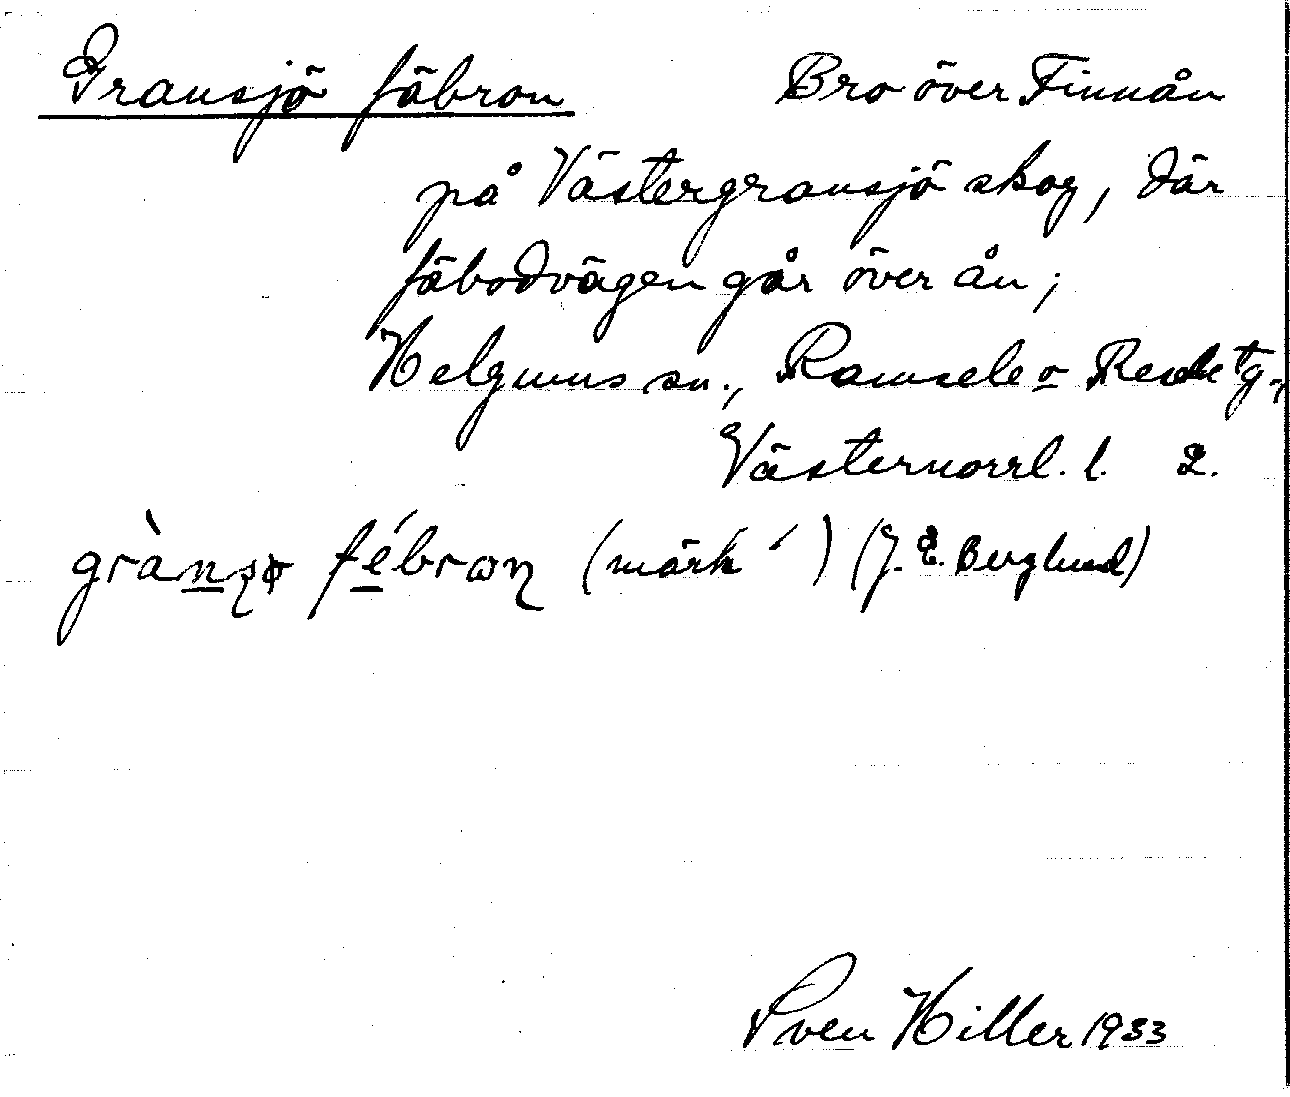 Gransjö fäbron Bro över Finnån
på Västergransjö skog, där
fäbodvägen går över ån;
Helgums sn., Ramsele o Resele tg.,
Västernorrl. l. 2.
grànsø fébron (märk ´) (J. E. Berglund)
Sven Hiller 1933